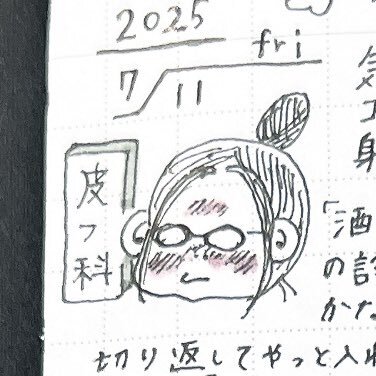 2025
7/11 fri
皮フ科
気
身
「酒
の診
かな
切り返してやっと入れ